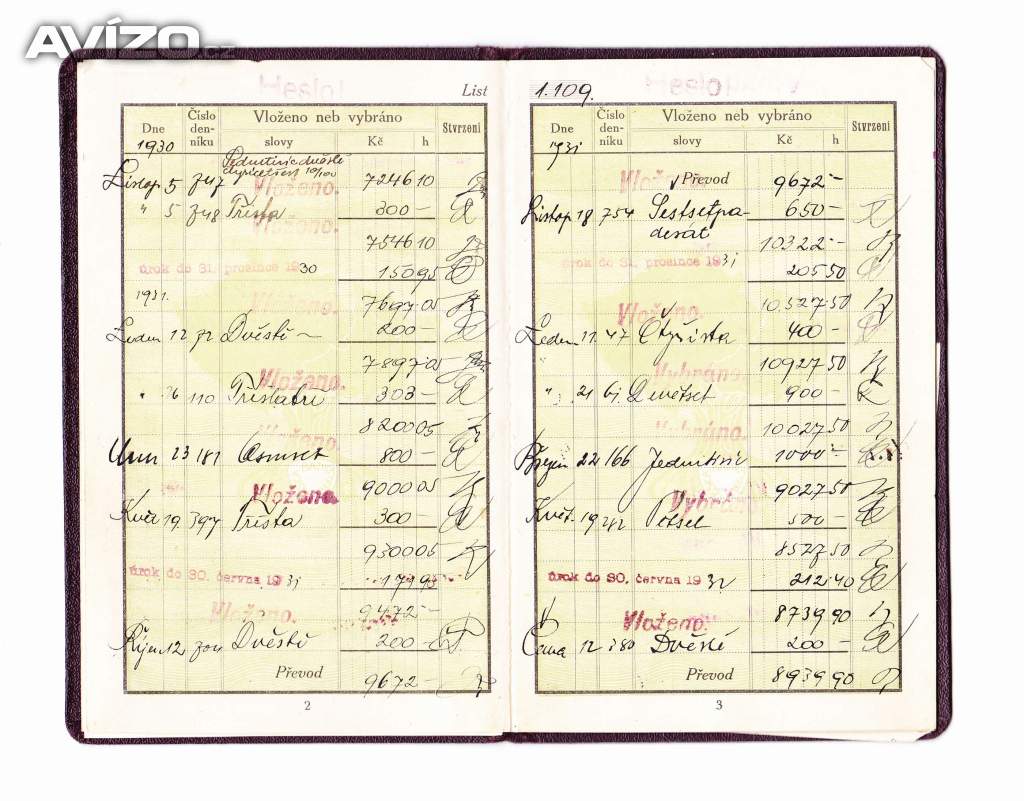 AVÍZO.cz
List
Dne
Číslo den-níku
Vloženo neb vybráno
slovy
Kč
h
Stvrzení
1930
Sedmtisícdvěstě
čtyřicetšest 10/100
Vloženo.
Listop 5 747 7246 10
" 5 748 Třista 300 –
Vloženo.
7546 10
úrok do 31. prosince 1930 150 95
1931.
7697 05
Vloženo.
Leden 12 Dvěstě – 200 –
7897 05
Vloženo.
110 Třistatři 303 –
8200 05
Vloženo.
Únor 23 181 Osmset 800 –
9000 05
Vloženo.
Kvě 19 397 Třista 300 –
9300 05
úrok do 30. června 1931 171 95
9472 –
Vloženo.
Říjen 12 704 Dvěstě 200 –
Převod 9672 –
2
1.109.
Dne
Číslo den-níku
Vloženo neb vybráno
slovy
Kč
h
Stvrzení
1931
Převod 9672 –
Vloženo.
Listop 18 754 Šestsetpa- 650 –
desát
10322 –
úrok do 31. prosince 1931 205 50
10.527 50
Vloženo.
Leden 11 47 Čtyřista 400 –
10927 50
Vybráno.
" 21 Devětset 900 –
10027 50
Vybráno.
Březen 22 166 Jedentisíc 1000 –
9027 50
Vybráno.
Květ. 19 Pětset 500 –
8527 50
úrok do 30. června 1932 212 40
8739 90
Vloženo.
12 380 Dvěstě 200 –
Převod 8939 90
3